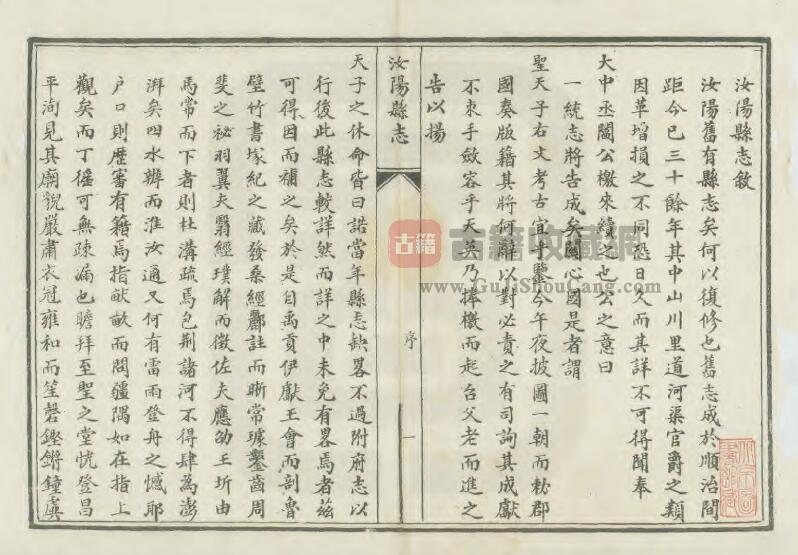 汝陽縣志敘
汝陽舊有縣志矣何以復修也舊志成於順治間
距今已三十餘年其中山川里道河渠官爵之類
因革增損之不同恐日久而其詳不可得聞奉
大中丞閻公檄來續之也公之意曰
一統志將告成矣關心國是者謂
聖天子右文考古宜乎鑒今午夜披圖一朝而勑郡
國奏版籍其將何辭以對必責之有司詢其成獻
不朿手斂容乎天英乃捧檄而起台父老而進之
告以揚
汝陽縣志
序
一
天子之休命皆曰諾當年縣志缺畧不過附府志以
行後此縣志較詳然而詳之中未免有畧焉者茲
可得因而補之矣於是自禹貢伊獻王會而剖魯
壁竹書塚紀之藏發桑經酈註而晰常璩鑿齒周
斐之祕羽翼夫翳經璞解而徵佐夫應劭王圻由
馬常而下者則杜溝疏焉包荆諸河不得肆為澎
湃矣四水辨而淮汝通又何有雷雨登舟之憾耶
户口則歷審有籍焉指畎畝而問疆隅如在指上
觀矣而丁徭可無疎漏也瞻拜至聖之堂恍登昌
平洵見其廟貌嚴肅衣冠雍和而笙磬鏗鏘鐘簴
古籍收藏網
www.GuJiShouCang.com